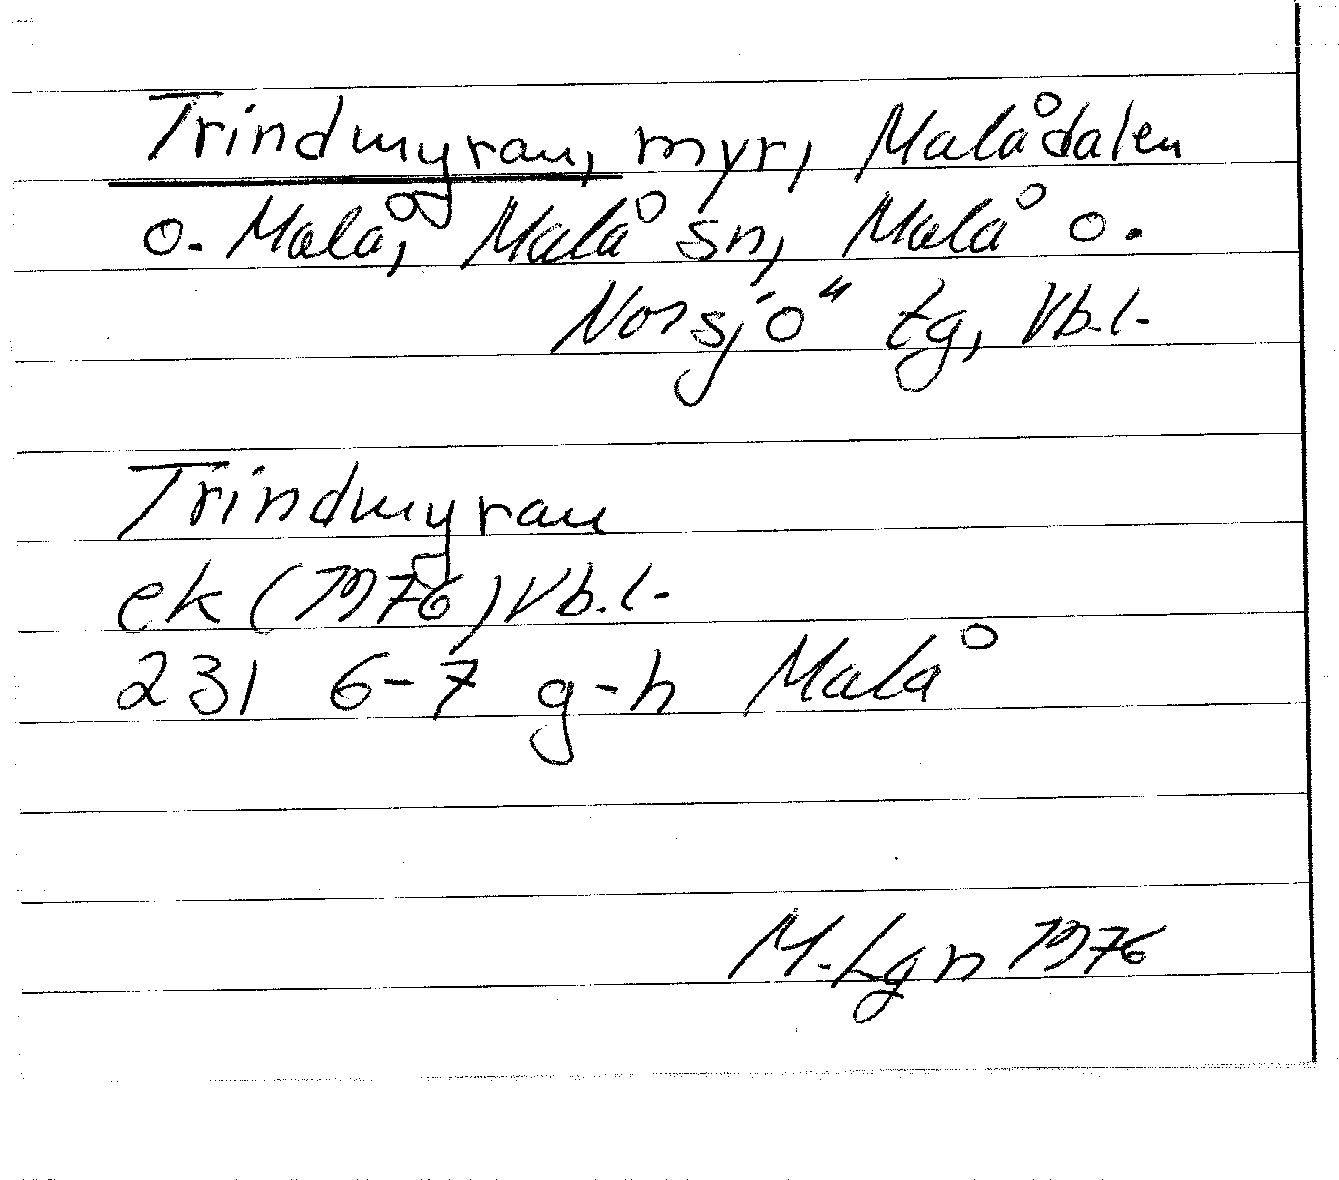 Trindmyran, myr, Malådalen
o. Malå, Malå sn, Malå o.
Norsjö tg, Vb.l.
Trindmyran
ek (1976) Vb.l.
231 6-7 g-h Malå
M.Lgn 1976